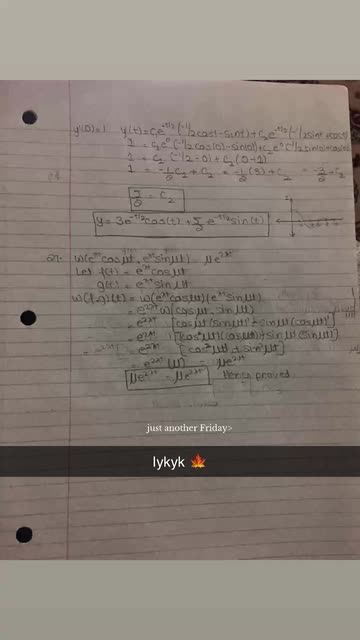 y'(0)=1 y'(t)=c₁e^-t/2(-1/2cost-sint)+c₂e^-t/2(-1/2sint+cost)
1 = c₁e⁰(-1/2cos(0)-sin(0))+c₂e⁰(-1/2sin(0)+cos(0))
1 = c₁(-1/2-0)+c₂(0+1)
1 = -1/2c₁+c₂ = -1/2(3)+c₂ = -3/2+c₂
5/2 = c₂
y = 3e^-t/2cos(t)+5/2e^-t/2sin(t)
W(e^λt cosμt, e^λt sinμt) = μe^2λt
Let f(t) = e^λt cosμt
g(t) = e^λt sinμt
W(f,g)(t) = W(e^λt cosμt)(e^λt sinμt)
= e^2λt W(cosμt, sinμt)
= e^2λt [cosμt(sinμt)'-sinμt(cosμt)']
= e^2λt
= e^2λt [cos²μt + sin²μt]
= e^2λt(μ) = μe^2λt
μe^2λt = μe^2λt Hence proved.
just another Friday>
lykyk 🍁